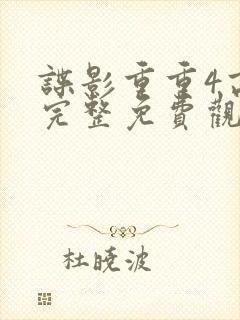 諜影重重4
完整免費觀
杜曉波